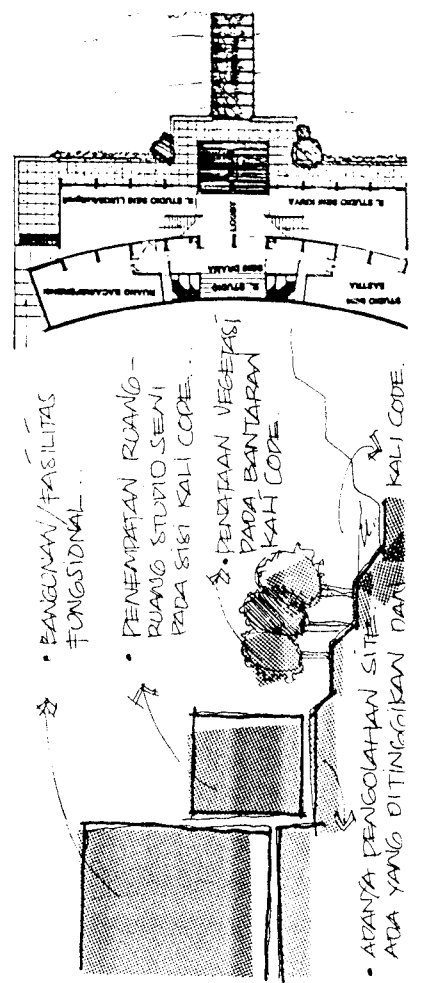 R. STUDIO SENI LUKIS/
LOBBY
R. STUDIO SENI KRIYA
RUANG BACA/
R. STUDIO
SENI DRAMA
STUDIO SENI
SASTRA
• BANGUNAN/FASILITAS
FUNGSIONAL...
• PENEMPATAN RUANG-
RUANG STUDIO SENI
PADA SISI KALI CODE...
• PENATAAN VEGETASI
PADA BANTARAN
KALI CODE.
• ADANYA PENGOLAHAN SITE
ADA YANG DITINGGIKAN DARI KALI CODE.